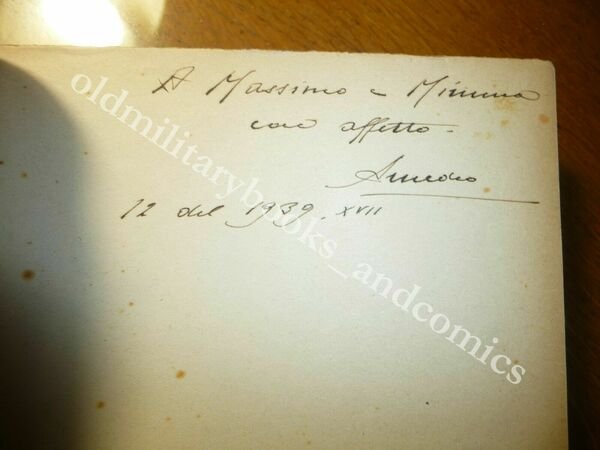 A Massimo e Mimma
con affetto.
Amedeo
12 del 1939. XVII
oldmilitarybooks_andcomics